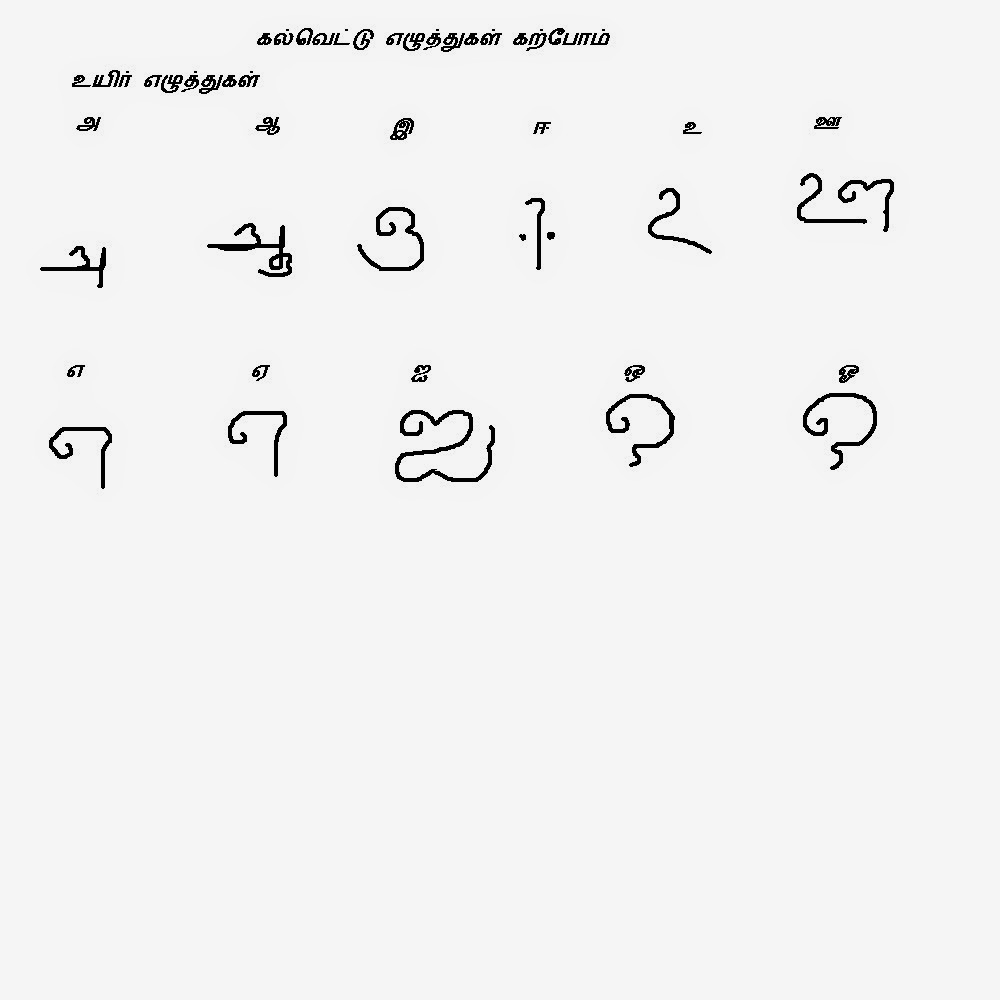 கல்வெட்டு எழுத்துகள் கற்போம்
உயிர் எழுத்துகள்
அ ஆ இ ஈ உ ஊ
அ ஆ இ ஈ உ ஊ
எ ஏ ஐ ஒ ஓ
எ ஏ ஐ ஒ ஓ